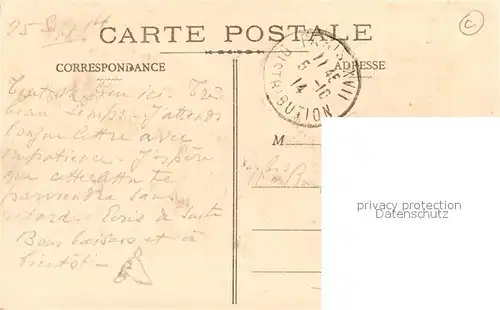 25 Sept 14
CARTE POSTALE
CORRESPONDANCE
ADRESSE
PARIS XVIII
11 45
5 -10
14
DISTRIBUTION
M
Tout va bien ici. Très
beau temps. J'attends
longue lettre avec
impatience. J'espère
que cette lettre te
parviendra sans
retard. Ecris de suite
Bons baisers et à
bientôt -
privacy protection
Datenschutz
C